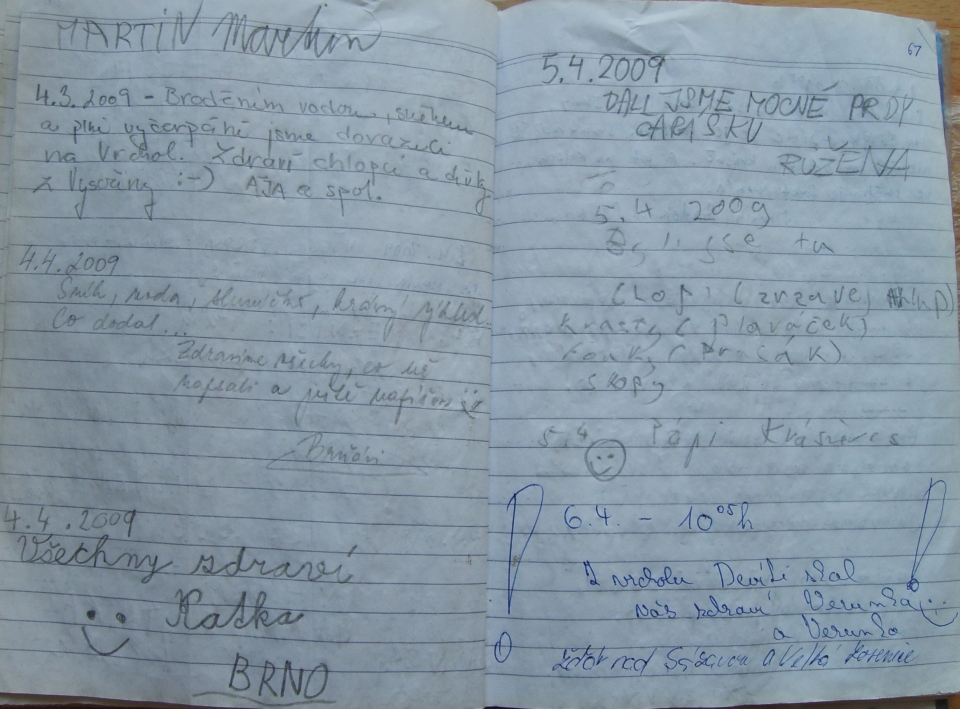 MARTIN Martin
4.3.2009 - Broděním vodou, sněhem
a plni vyčerpání jsme dorazili
na vrchol. Zdraví chlopci a děvky
z Vysočiny :-) AJA a spol.
4.4.2009
Sníh, voda, sluníčko, krásný výhled.
Co dodat...
Zdravíme všechny, co už
napsali a ještě napíšou
Brňáci
4.4.2009
Všechny zdraví
Katka
BRNO
67
5.4.2009
DALI JSME MOCNÉ PRDY
CAPÁŠKU
RŮŽENA
5.4 2009
jsme tu
(zrzavej
Krasty (plaváček)
skopy
5.4 Pápi
6.4. - 10⁰⁵h
Z vrcholu Devíti skal
vás zdraví Verunka
a Verunka
Žďár nad Sázavou a Velká Losenice